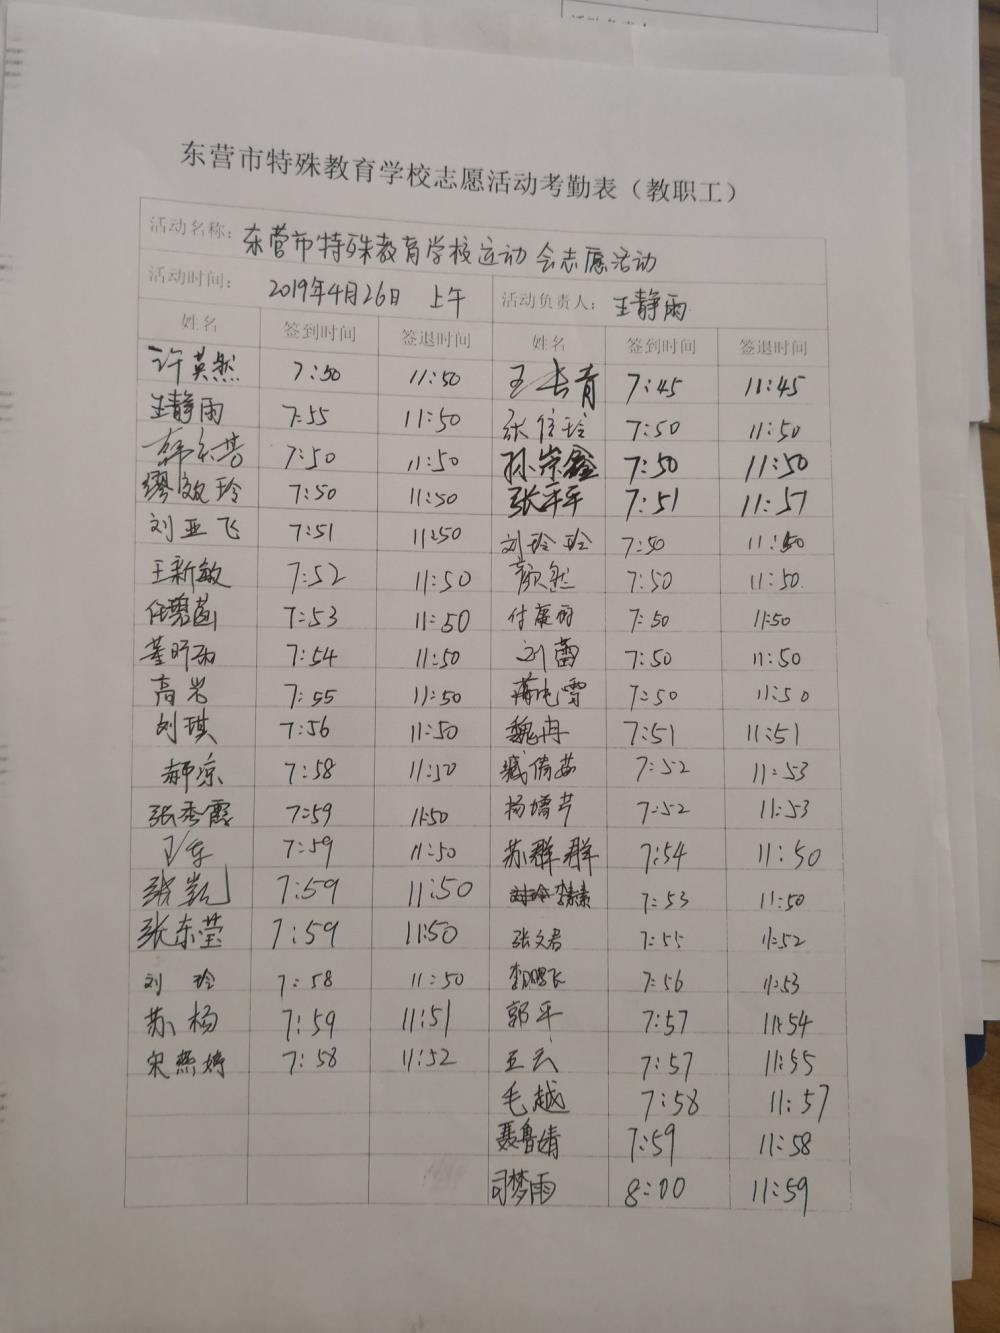 东营市特殊教育学校志愿活动考勤表（教职工）
活动名称：东营市特殊教育学校运动会志愿活动
活动时间：2019年4月26日 上午 活动负责人：王静雨
姓名 签到时间 签退时间 姓名 签到时间 签退时间
许英然 7:50 11:50 王长青 7:45 11:45
王静雨 7:55 11:50 张信玲 7:50 11:50
7:50 11:50 孙崇鑫 7:50 11:50
缪效玲 7:50 11:50 张平平 7:51 11:57
刘亚飞 7:51 11:50 刘玲玲 7:50 11:50
王新敏 7:52 11:50 颜然 7:50 11:50
任碧菡 7:53 11:50 7:50 11:50
董昕雨 7:54 11:50 刘蕾 7:50 11:50
高岩 7:55 11:50 7:50 11:50
刘琪 7:56 11:50 魏冉 7:51 11:51
郝凉 7:58 11:50 臧倩茹 7:52 11:53
张秀霞 7:59 11:50 7:52 11:53
7:59 11:50 苏群群 7:54 11:50
张凯 7:59 11:50 李素素 7:53 11:50
张东莹 7:59 11:50 张文君 7:55 11:52
刘玲 7:58 11:50 李鹏飞 7:56 11:53
苏杨 7:59 11:51 郭平 7:57 11:54
宋燕婷 7:58 11:52 王云 7:57 11:55
毛越 7:58 11:57
聂鲁婧 7:59 11:58
司梦雨 8:00 11:59